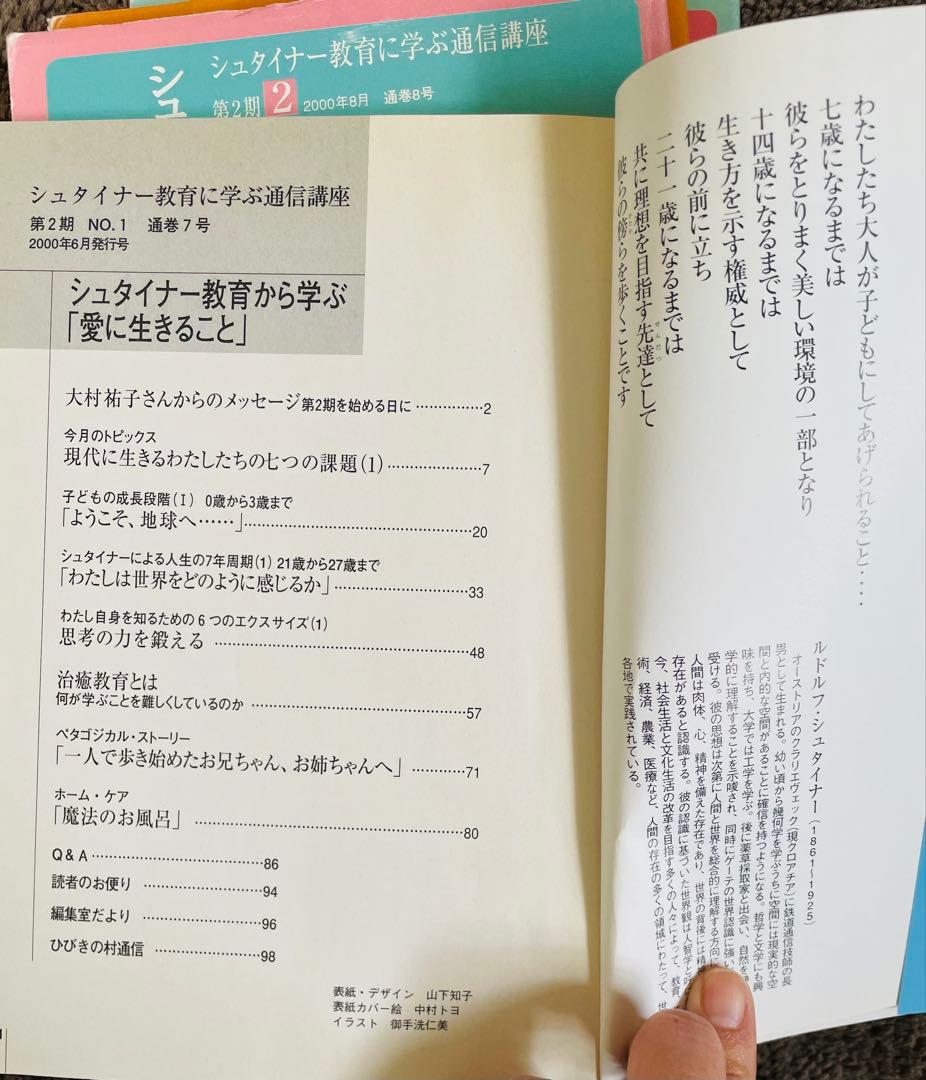 シュタイナー教育に学ぶ通信講座
第2期 2 2000年8月 通巻8号
シュ
シュタイナー教育に学ぶ通信講座
第2期 NO.1 通巻7号
2000年6月発行号
シュタイナー教育から学ぶ
「愛に生きること」
大村祐子さんからのメッセージ 第2期を始める日に ……………2
今月のトピックス
現代に生きるわたしたちの七つの課題(1)…………………7
子どもの成長段階(I) 0歳から3歳まで
「ようこそ、地球へ……」…………………………………………20
シュタイナーによる人生の7年周期(1) 21歳から27歳まで
「わたしは世界をどのように感じるか」…………………………33
わたし自身を知るための6つのエクスサイズ(1)
思考の力を鍛える …………………………………………………48
治癒教育とは
何が学ぶことを難しくしているのか ……………………………57
ペタゴジカル・ストーリー
「一人で歩き始めたお兄ちゃん、お姉ちゃんへ」……………71
ホーム・ケア
「魔法のお風呂」 …………………………………………………80
Q&A ………………………………86
読者のお便り ……………………94
編集室だより ……………………96
ひびきの村通信 …………………98
表紙・デザイン 山下知子
表紙カバー絵 中村トヨ
イラスト 御手洗仁美
わたしたち大人が子どもにしてあげられること‥‥‥
七歳になるまでは
彼らをとりまく美しい環境の一部となり
十四歳になるまでは
生き方を示す権威として
彼らの前に立ち
二十一歳になるまでは
共に理想を目指す先達として
せんだつ
彼らの傍らを歩くことです
ルドルフ・シュタイナー(1861〜1925)
オーストリアのクラリエヴェック(現クロアチア)に鉄道通信技師の長
男として生まれる。幼い頃から幾何学を学ぶうちに空間には現実的な空
間と内的な空間があることに確信を持つようになる。哲学と文学にも興
味を持ち、大学では工学を学ぶ。後に薬草採取家と出会い、自然を
学的に理解することを示唆され、同時にゲーテの世界認識に強い
受ける。彼の思想は次第に人間と世界を総合的に理解する方向に
人間は肉体、心、精神を備えた存在であり、世界の背後には精
存在があると認識する。彼の認識に基づいた世界観は人智学と呼
今、社会生活と文化生活の改革を目指す多くの人々によって、教育、
術、経済、農業、医療など、人間の存在の多くの領域にわたって、世
各地で実践されている。